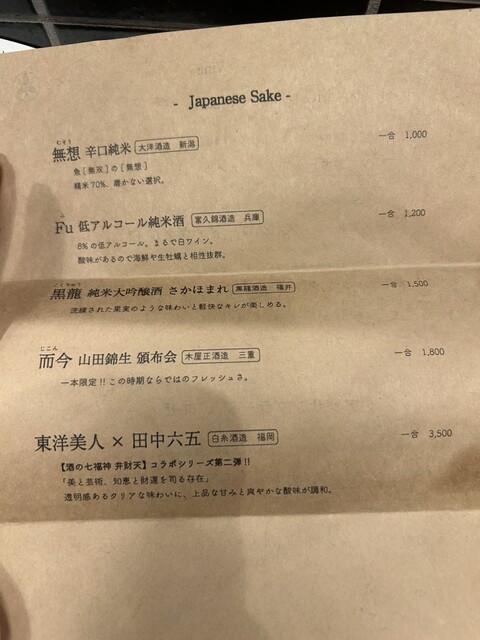 - Japanese Sake -
むそう
無想 辛口純米 大洋酒造 新潟 一合 1,000
魚[無双]の[無想]
精米70%、磨かない選択。
ふ
Fu 低アルコール純米酒 富久錦酒造 兵庫 一合 1,200
8%の低アルコール。まるで白ワイン。
酸味があるので海鮮や生牡蠣と相性抜群。
こくりゅう
黒龍 純米大吟醸酒 さかほまれ 黒龍酒造 福井 一合 1,500
洗練された果実のような味わいと軽快なキレが楽しめる。
じこん
而今 山田錦生 頒布会 木屋正酒造 三重 一合 1,800
一本限定!!この時期ならではのフレッシュさ。
東洋美人 × 田中六五 白糸酒造 福岡 一合 3,500
【酒の七福神 弁財天】コラボシリーズ第二弾!!
「美と芸術、知恵と財運を司る存在」
透明感あるクリアな味わいに、上品な甘みと爽やかな酸味が調和。